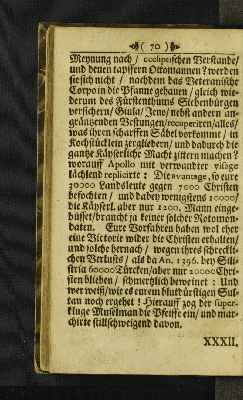 ( 70 )
Meynung nach / ecclipsischen Verstande/
und denen tapffern Ottomannen? werden
sie sich nicht / nachdem das Veteranische
Corpo in die Pfanne gehauen / gleich wie-
derum des Fürstenthums Siebenbürgen
versichern / Giula / Jeno / nebst andern an-
gräntzenden Vestungen / recuperiren / alles /
was ihren scharffen Säbel vorkommt / in
Kochstücklein zergliedern / und dadurch die
gantze Käyserliche Macht zittern machen?
worauf Apollo mit verwandter visage
lächlend replicirte: Die avantage, so eure
30000 Landsleute gegen 7000 Christen
befochten / und dabey wenigstens 10000 /
die Käyserl. aber nur 1200. Mann einge-
büsset / braucht ja keiner solcher Rotomon-
daten. Eure Vorfahren haben wol eher
eine Victorie wider die Christen erhalten /
und solche hernach / wegen ihres schreckli-
chen Verlusts / als da An. 1396. bey Sili-
stria 60000 Türcken / aber nur 20000 Chri-
sten blieben / schmertzlich beweinet: Und
wer weiß / wie es eurem blutdürstigen Sul-
tan noch ergehet! Hierauf zog der super-
kluge Muselman die Pfeiffe ein / und mar-
chirte stillschweigend davon.
XXXII,